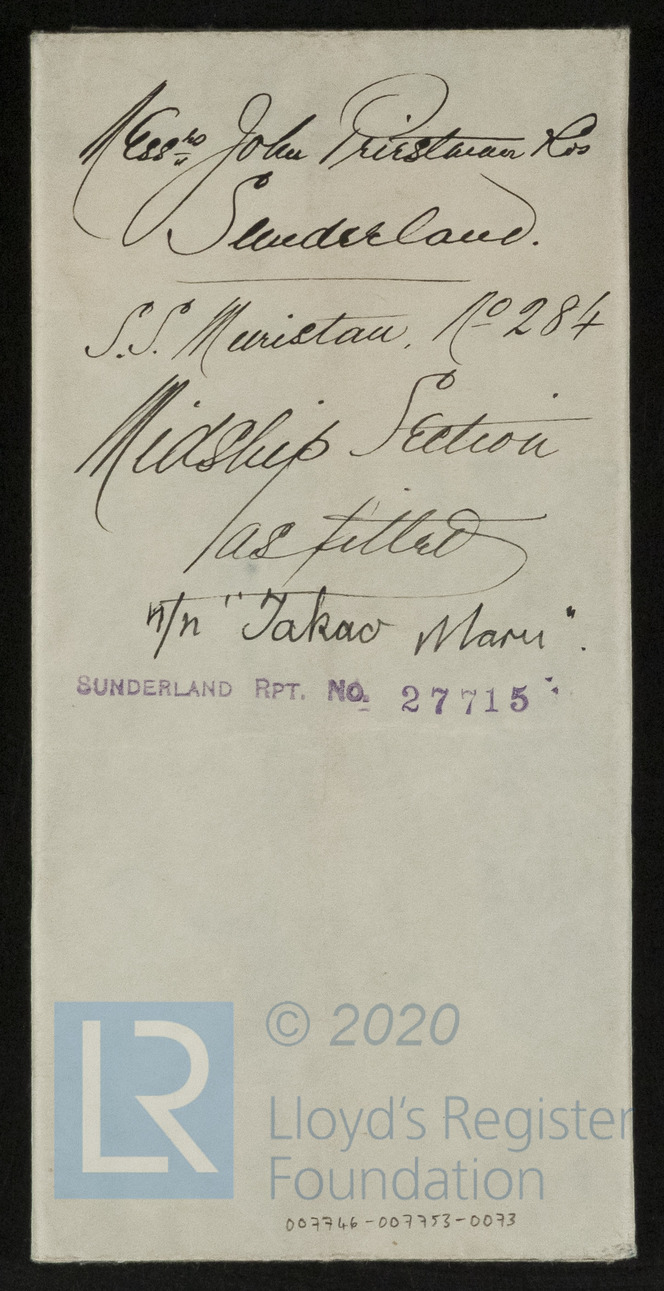 Mess.rs John Priestman & Co
Sunderland.
S.S. Muristan. No 284
Midship Section
as fitted
n/n "Takao Maru".
SUNDERLAND RPT. No. 27715
LR
© 2020
Lloyd's Register
Foundation
007746-007753-0073